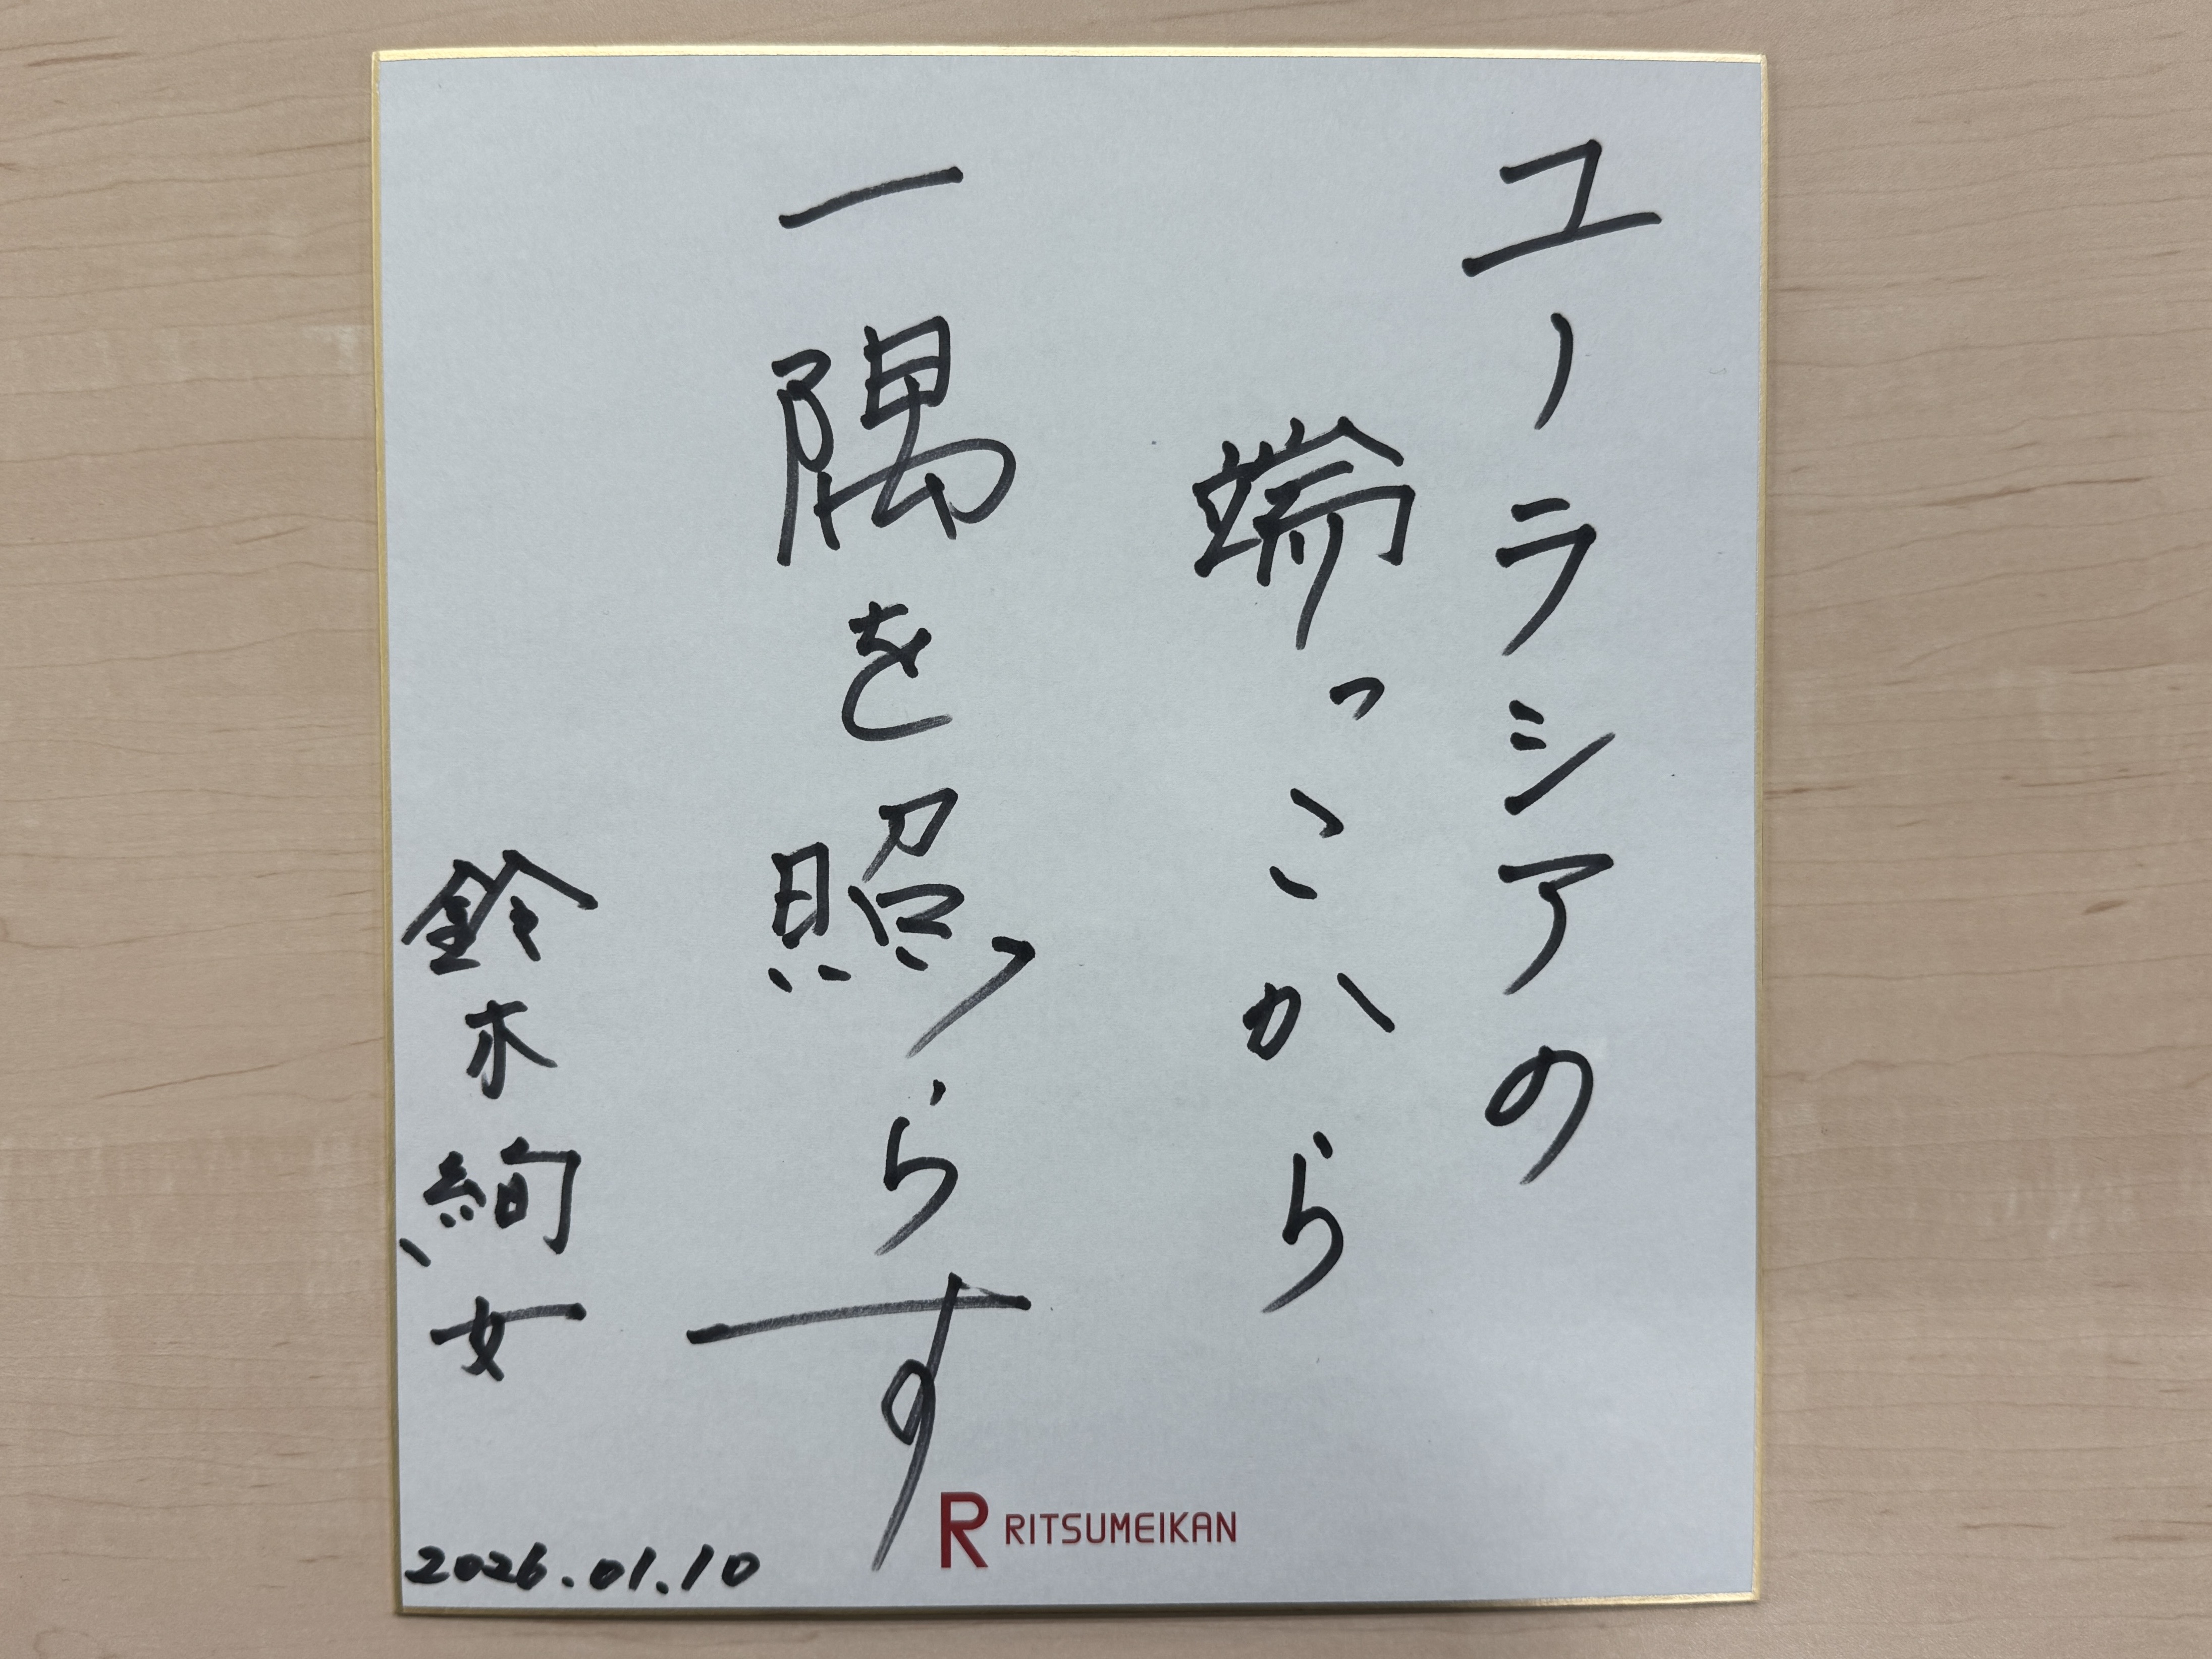 ユーラシアの
端っこから
一隅を照らす
鈴木絢女
2026.01.10
R RITSUMEIKAN